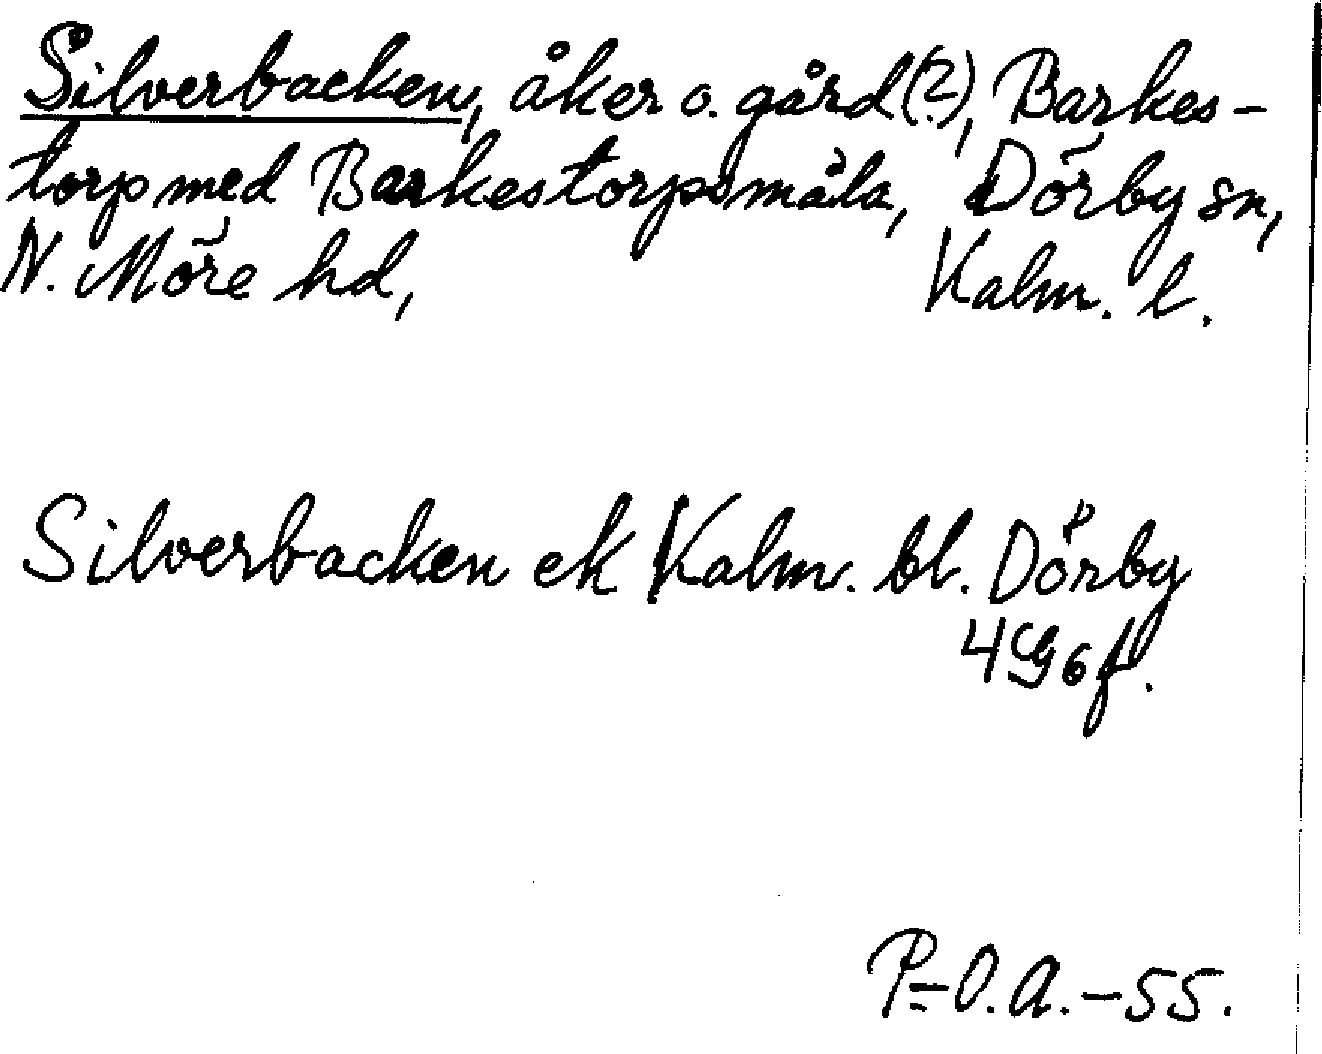 Silverbacken, åker o. gård(?), Barkes-
torp med Barkestorpsmåla, Dörby sn,
N. Möre hd, Kalm. l.
Silverbacken ek Kalm. bl. Dörby
4 G 6 f.
P-O.A.-55.